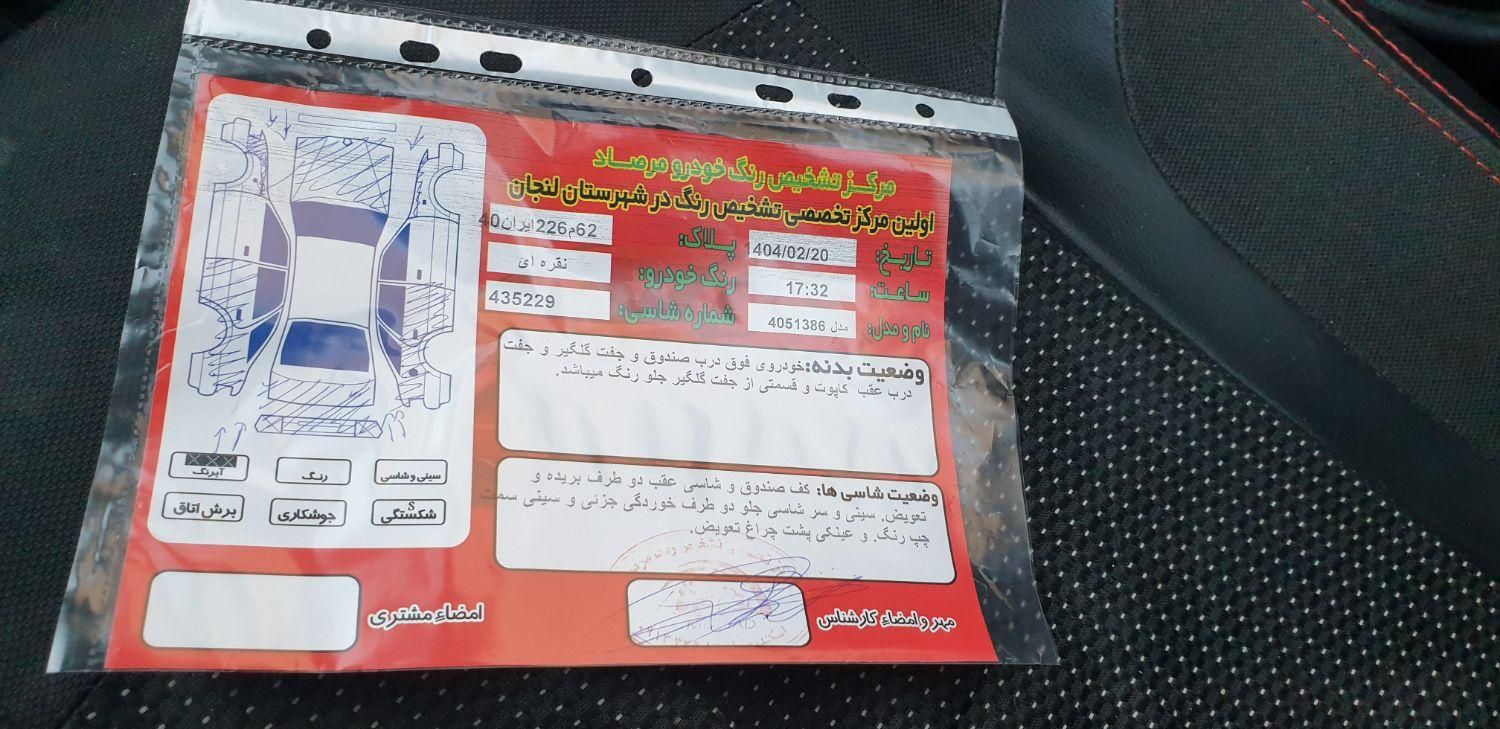 مرکز تشخیص رنگ خودرو مرصاد
اولین مرکز تخصصی تشخیص رنگ در شهرستان لنجان
تاریخ: 1404/02/20 پلاک: 62م226ایران40
ساعت: 17:32 رنگ خودرو: نقره ای
نام و مدل: 405 مدل 1386 شماره شاسی: 435229
وضعیت بدنه: خودروی فوق درب صندوق و جفت گلگیر و جفت
درب عقب کاپوت و قسمتی از جفت گلگیر جلو رنگ میباشد.
وضعیت شاسی ها: کف صندوق و شاسی عقب دو طرف بریده و
تعویض. سینی و سر شاسی جلو دو طرف خوردگی جزئی و سینی سمت
چپ رنگ. و عینکی پشت چراغ تعویض.
سینی و شاسی رنگ آبرنگ
شکستگی S جوشکاری برش اتاق
مهر و امضاء کارشناس امضاء مشتری